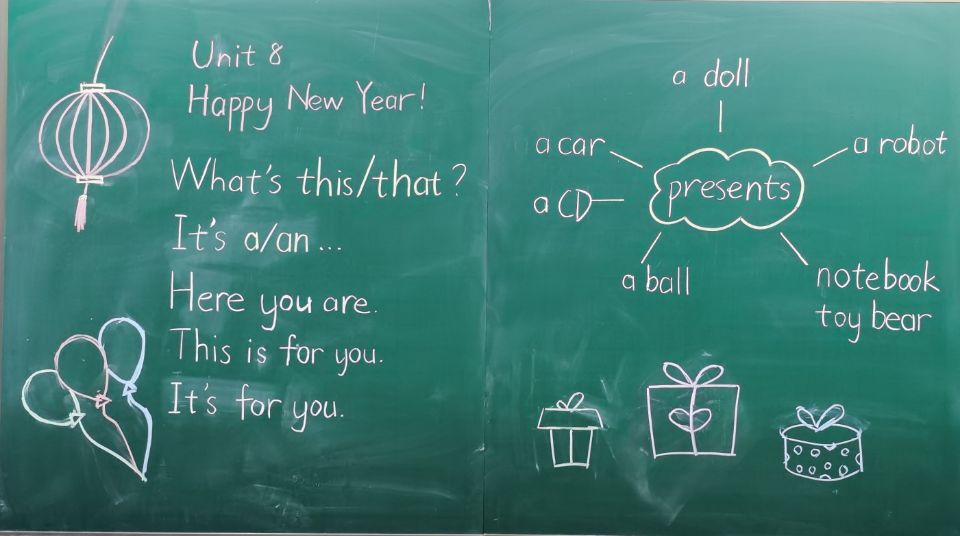 Unit 8
Happy New Year!
What's this/that?
It's a/an...
Here you are.
This is for you.
It's for you.
a doll
a car
a robot
presents
a CD
a ball
notebook
toy bear